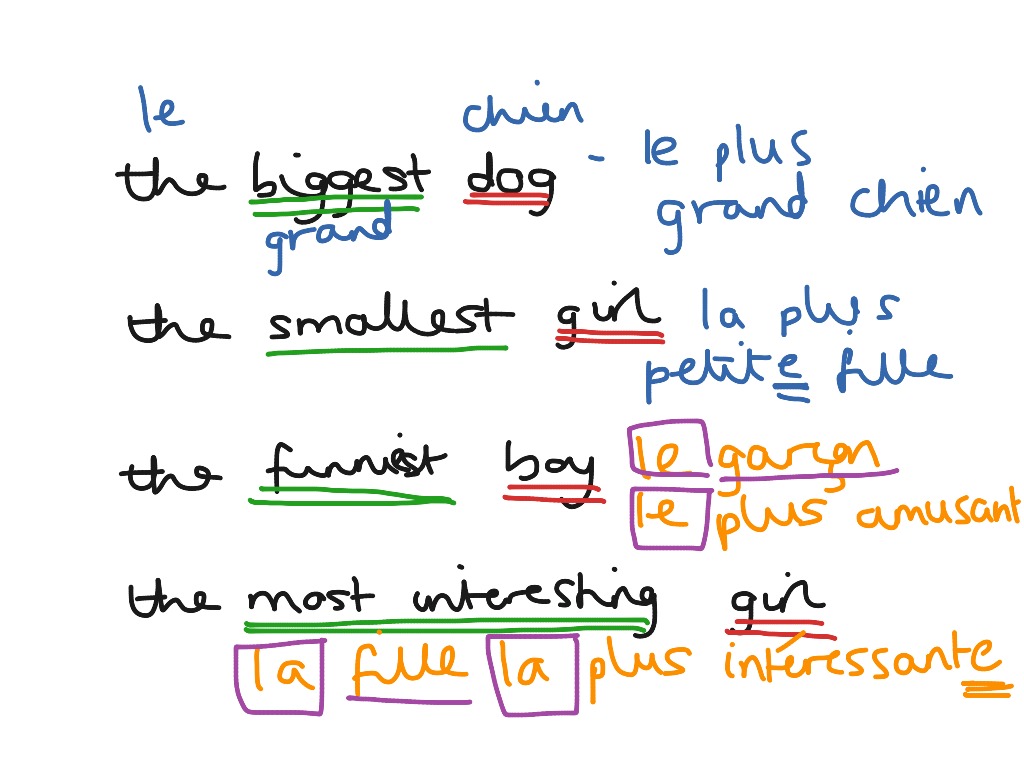 le chien
the biggest dog - le plus
grand grand chien
the smallest girl la plus
petite fille
the funniest boy le garçon
le plus amusant
the most interesting girl
la fille la plus intéressante